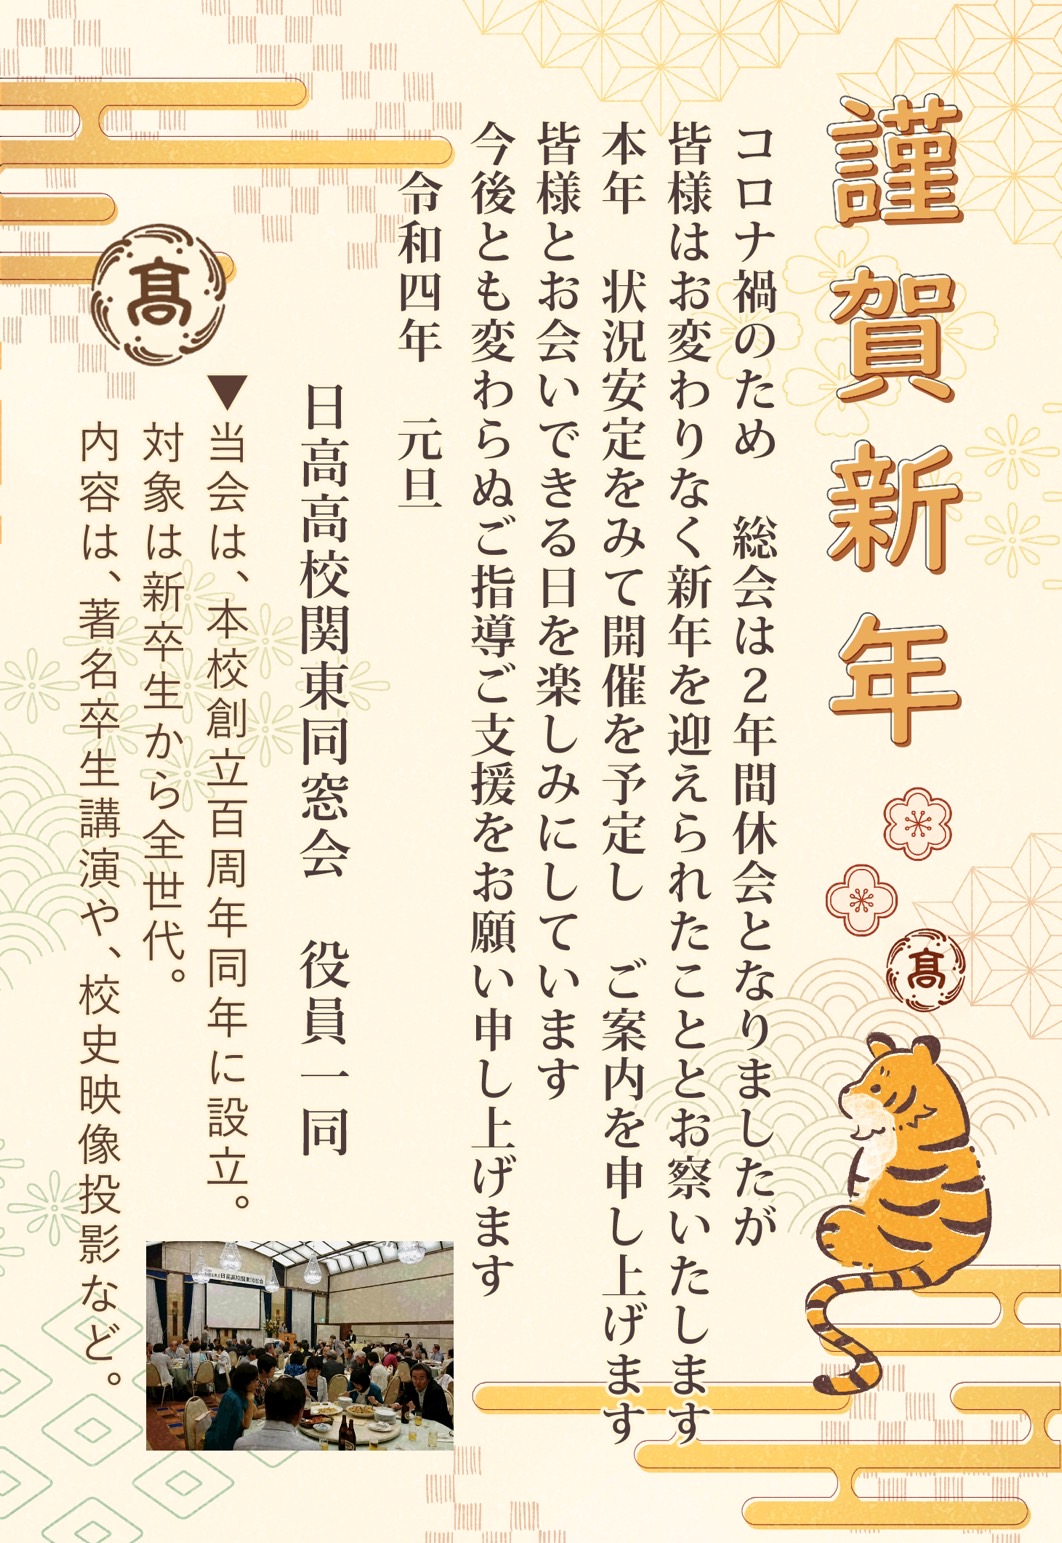 謹賀新年
髙
コロナ禍のため　総会は２年間休会となりましたが
皆様はお変わりなく新年を迎えられたこととお察いたします
本年　状況安定をみて開催を予定し　ご案内を申し上げます
皆様とお会いできる日を楽しみにしています
今後とも変わらぬご指導ご支援をお願い申し上げます
令和四年　元旦
日高高校関東同窓会　役員一同
髙
▼当会は、本校創立百周年同年に設立。
対象は新卒生から全世代。
内容は、著名卒生講演や、校史映像投影など。